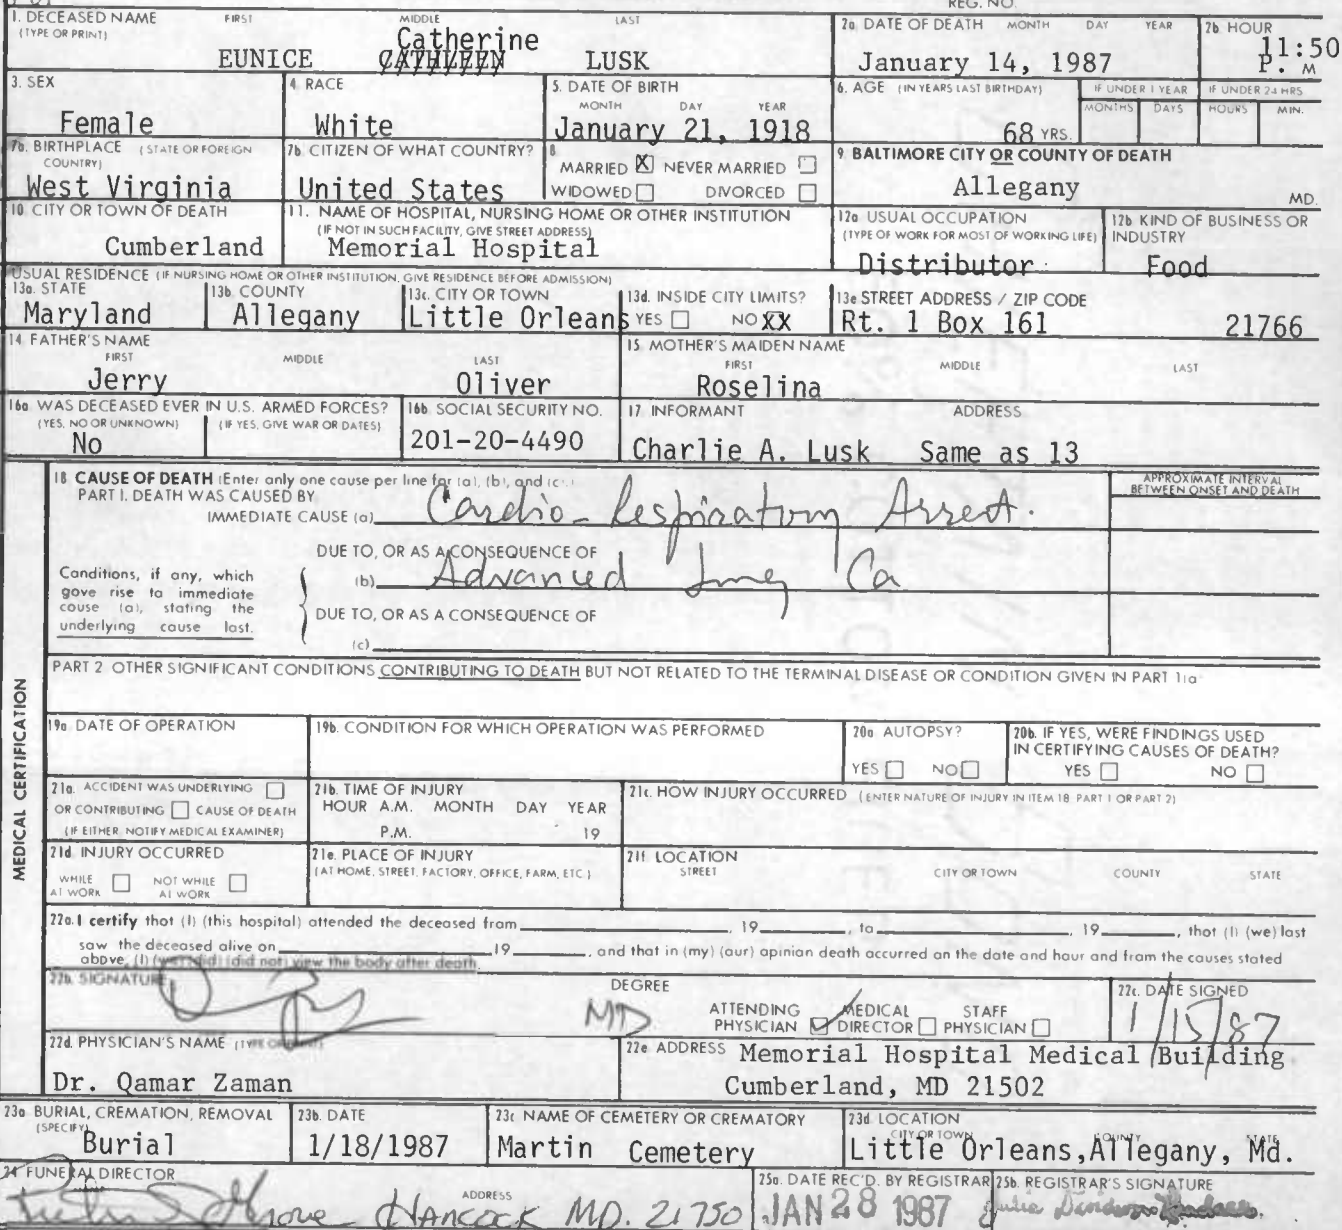 REG. NO.
1. DECEASED NAME FIRST MIDDLE LAST
(TYPE OR PRINT)
Catherine
EUNICE CATHLEEN LUSK
2a DATE OF DEATH MONTH DAY YEAR
January 14, 1987
2b HOUR
11:50
P. M
3. SEX
Female
4. RACE
White
5. DATE OF BIRTH
MONTH DAY YEAR
January 21, 1918
6. AGE (IN YEARS LAST BIRTHDAY) IF UNDER 1 YEAR IF UNDER 24 HRS
MONTHS DAYS HOURS MIN.
68 YRS.
7a. BIRTHPLACE (STATE OR FOREIGN
COUNTRY)
West Virginia
7b. CITIZEN OF WHAT COUNTRY?
United States
8
MARRIED X NEVER MARRIED
WIDOWED DIVORCED
9. BALTIMORE CITY OR COUNTY OF DEATH
Allegany MD.
10 CITY OR TOWN OF DEATH
Cumberland
11. NAME OF HOSPITAL, NURSING HOME OR OTHER INSTITUTION
(IF NOT IN SUCH FACILITY, GIVE STREET ADDRESS)
Memorial Hospital
12a USUAL OCCUPATION
(TYPE OF WORK FOR MOST OF WORKING LIFE)
Distributor
12b KIND OF BUSINESS OR
INDUSTRY
Food
USUAL RESIDENCE (IF NURSING HOME OR OTHER INSTITUTION, GIVE RESIDENCE BEFORE ADMISSION)
13a. STATE
Maryland
13b. COUNTY
Allegany
13c. CITY OR TOWN
Little Orleans
13d. INSIDE CITY LIMITS?
YES NO XX
13e STREET ADDRESS / ZIP CODE
Rt. 1 Box 161 21766
14 FATHER'S NAME
FIRST MIDDLE LAST
Jerry Oliver
15 MOTHER'S MAIDEN NAME
FIRST MIDDLE LAST
Roselina
16a WAS DECEASED EVER IN U.S. ARMED FORCES?
(YES, NO OR UNKNOWN) (IF YES, GIVE WAR OR DATES)
No
16b SOCIAL SECURITY NO.
201-20-4490
17 INFORMANT ADDRESS
Charlie A. Lusk Same as 13
MEDICAL CERTIFICATION
18 CAUSE OF DEATH (Enter only one cause per line for (a), (b), and (c).)
PART I. DEATH WAS CAUSED BY
IMMEDIATE CAUSE (a) Cardio-Respiratory Arrest.
APPROXIMATE INTERVAL
BETWEEN ONSET AND DEATH
DUE TO, OR AS A CONSEQUENCE OF
(b) Advanced Lung Ca
Conditions, if any, which
gave rise to immediate
cause (a), stating the
underlying cause last.
DUE TO, OR AS A CONSEQUENCE OF
(c)
PART 2 OTHER SIGNIFICANT CONDITIONS CONTRIBUTING TO DEATH BUT NOT RELATED TO THE TERMINAL DISEASE OR CONDITION GIVEN IN PART 1(a)
19a. DATE OF OPERATION
19b. CONDITION FOR WHICH OPERATION WAS PERFORMED
20a AUTOPSY?
YES NO
20b. IF YES, WERE FINDINGS USED
IN CERTIFYING CAUSES OF DEATH?
YES NO
21a. ACCIDENT WAS UNDERLYING
OR CONTRIBUTING CAUSE OF DEATH
(IF EITHER, NOTIFY MEDICAL EXAMINER)
21b. TIME OF INJURY
HOUR A.M. MONTH DAY YEAR
P.M. 19
21c. HOW INJURY OCCURRED (ENTER NATURE OF INJURY IN ITEM 18 PART 1 OR PART 2)
21d. INJURY OCCURRED
WHILE AT WORK NOT WHILE AT WORK
21e. PLACE OF INJURY
(AT HOME, STREET, FACTORY, OFFICE, FARM, ETC.)
21f. LOCATION
STREET CITY OR TOWN COUNTY STATE
22a. I certify that (I) (this hospital) attended the deceased from , 19 , to , 19 , that (I) (we) last
saw the deceased alive on , 19 , and that in (my) (our) opinion death occurred on the date and hour and from the causes stated
above, (I) (we) (did) (did not) view the body after death.
22b. SIGNATURE
DEGREE
MD
ATTENDING PHYSICIAN MEDICAL DIRECTOR STAFF PHYSICIAN
22c. DATE SIGNED
1/15/87
22d. PHYSICIAN'S NAME (TYPE OR PRINT)
Dr. Qamar Zaman
22e ADDRESS Memorial Hospital Medical Building
Cumberland, MD 21502
23a BURIAL, CREMATION, REMOVAL
(SPECIFY)
Burial
23b. DATE
1/18/1987
23c NAME OF CEMETERY OR CREMATORY
Martin Cemetery
23d. LOCATION
CITY OR TOWN COUNTY STATE
Little Orleans, Allegany, Md.
24 FUNERAL DIRECTOR
ADDRESS
Grove HANCOCK MD. 21750
25a. DATE REC'D. BY REGISTRAR
JAN 28 1987
25b. REGISTRAR'S SIGNATURE